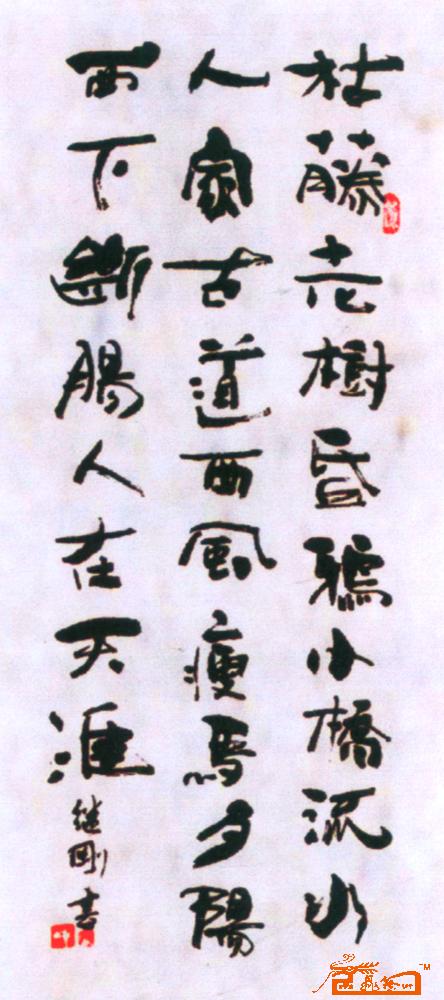 枯藤老樹昏鴉小橋流水
人家古道西風瘦馬夕陽
西下斷腸人在天涯
継剛書